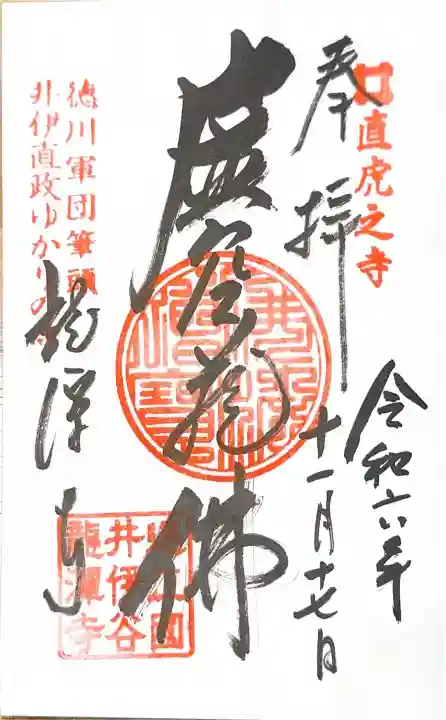 奉拝
直虎之寺
令和六年
十一月十七日
虚空蔵佛
徳川軍団筆頭
井伊直政ゆかりの
龍潭寺
遠江國
井伊谷
龍潭寺